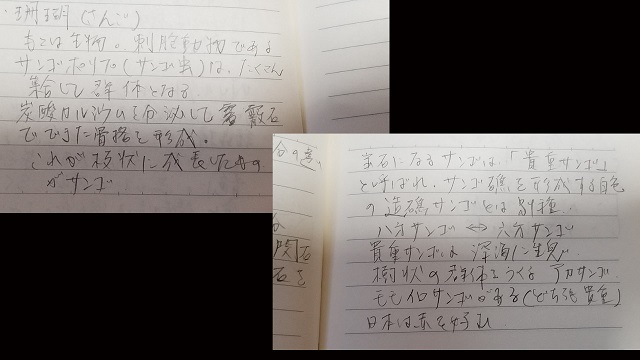 ・珊瑚(さんご)
もとは生物。刺胞動物である
サンゴポリプ(サンゴ虫)は、たくさん
集合して群体となる
炭酸カルシウムを分泌して霰石
でできた骨格を形成。
これが樹状に成長したもの
がサンゴ
宝石になるサンゴは、「貴重サンゴ」
と呼ばれ、サンゴ礁を形成する白色
の造礁サンゴとは別種。
八方サンゴ ⇔ 六方サンゴ
貴重サンゴは深海に生息
樹状の群体をつくる アカサンゴ
モモイロサンゴがある(どちらも貴重)
日本は赤を好む
石
石を